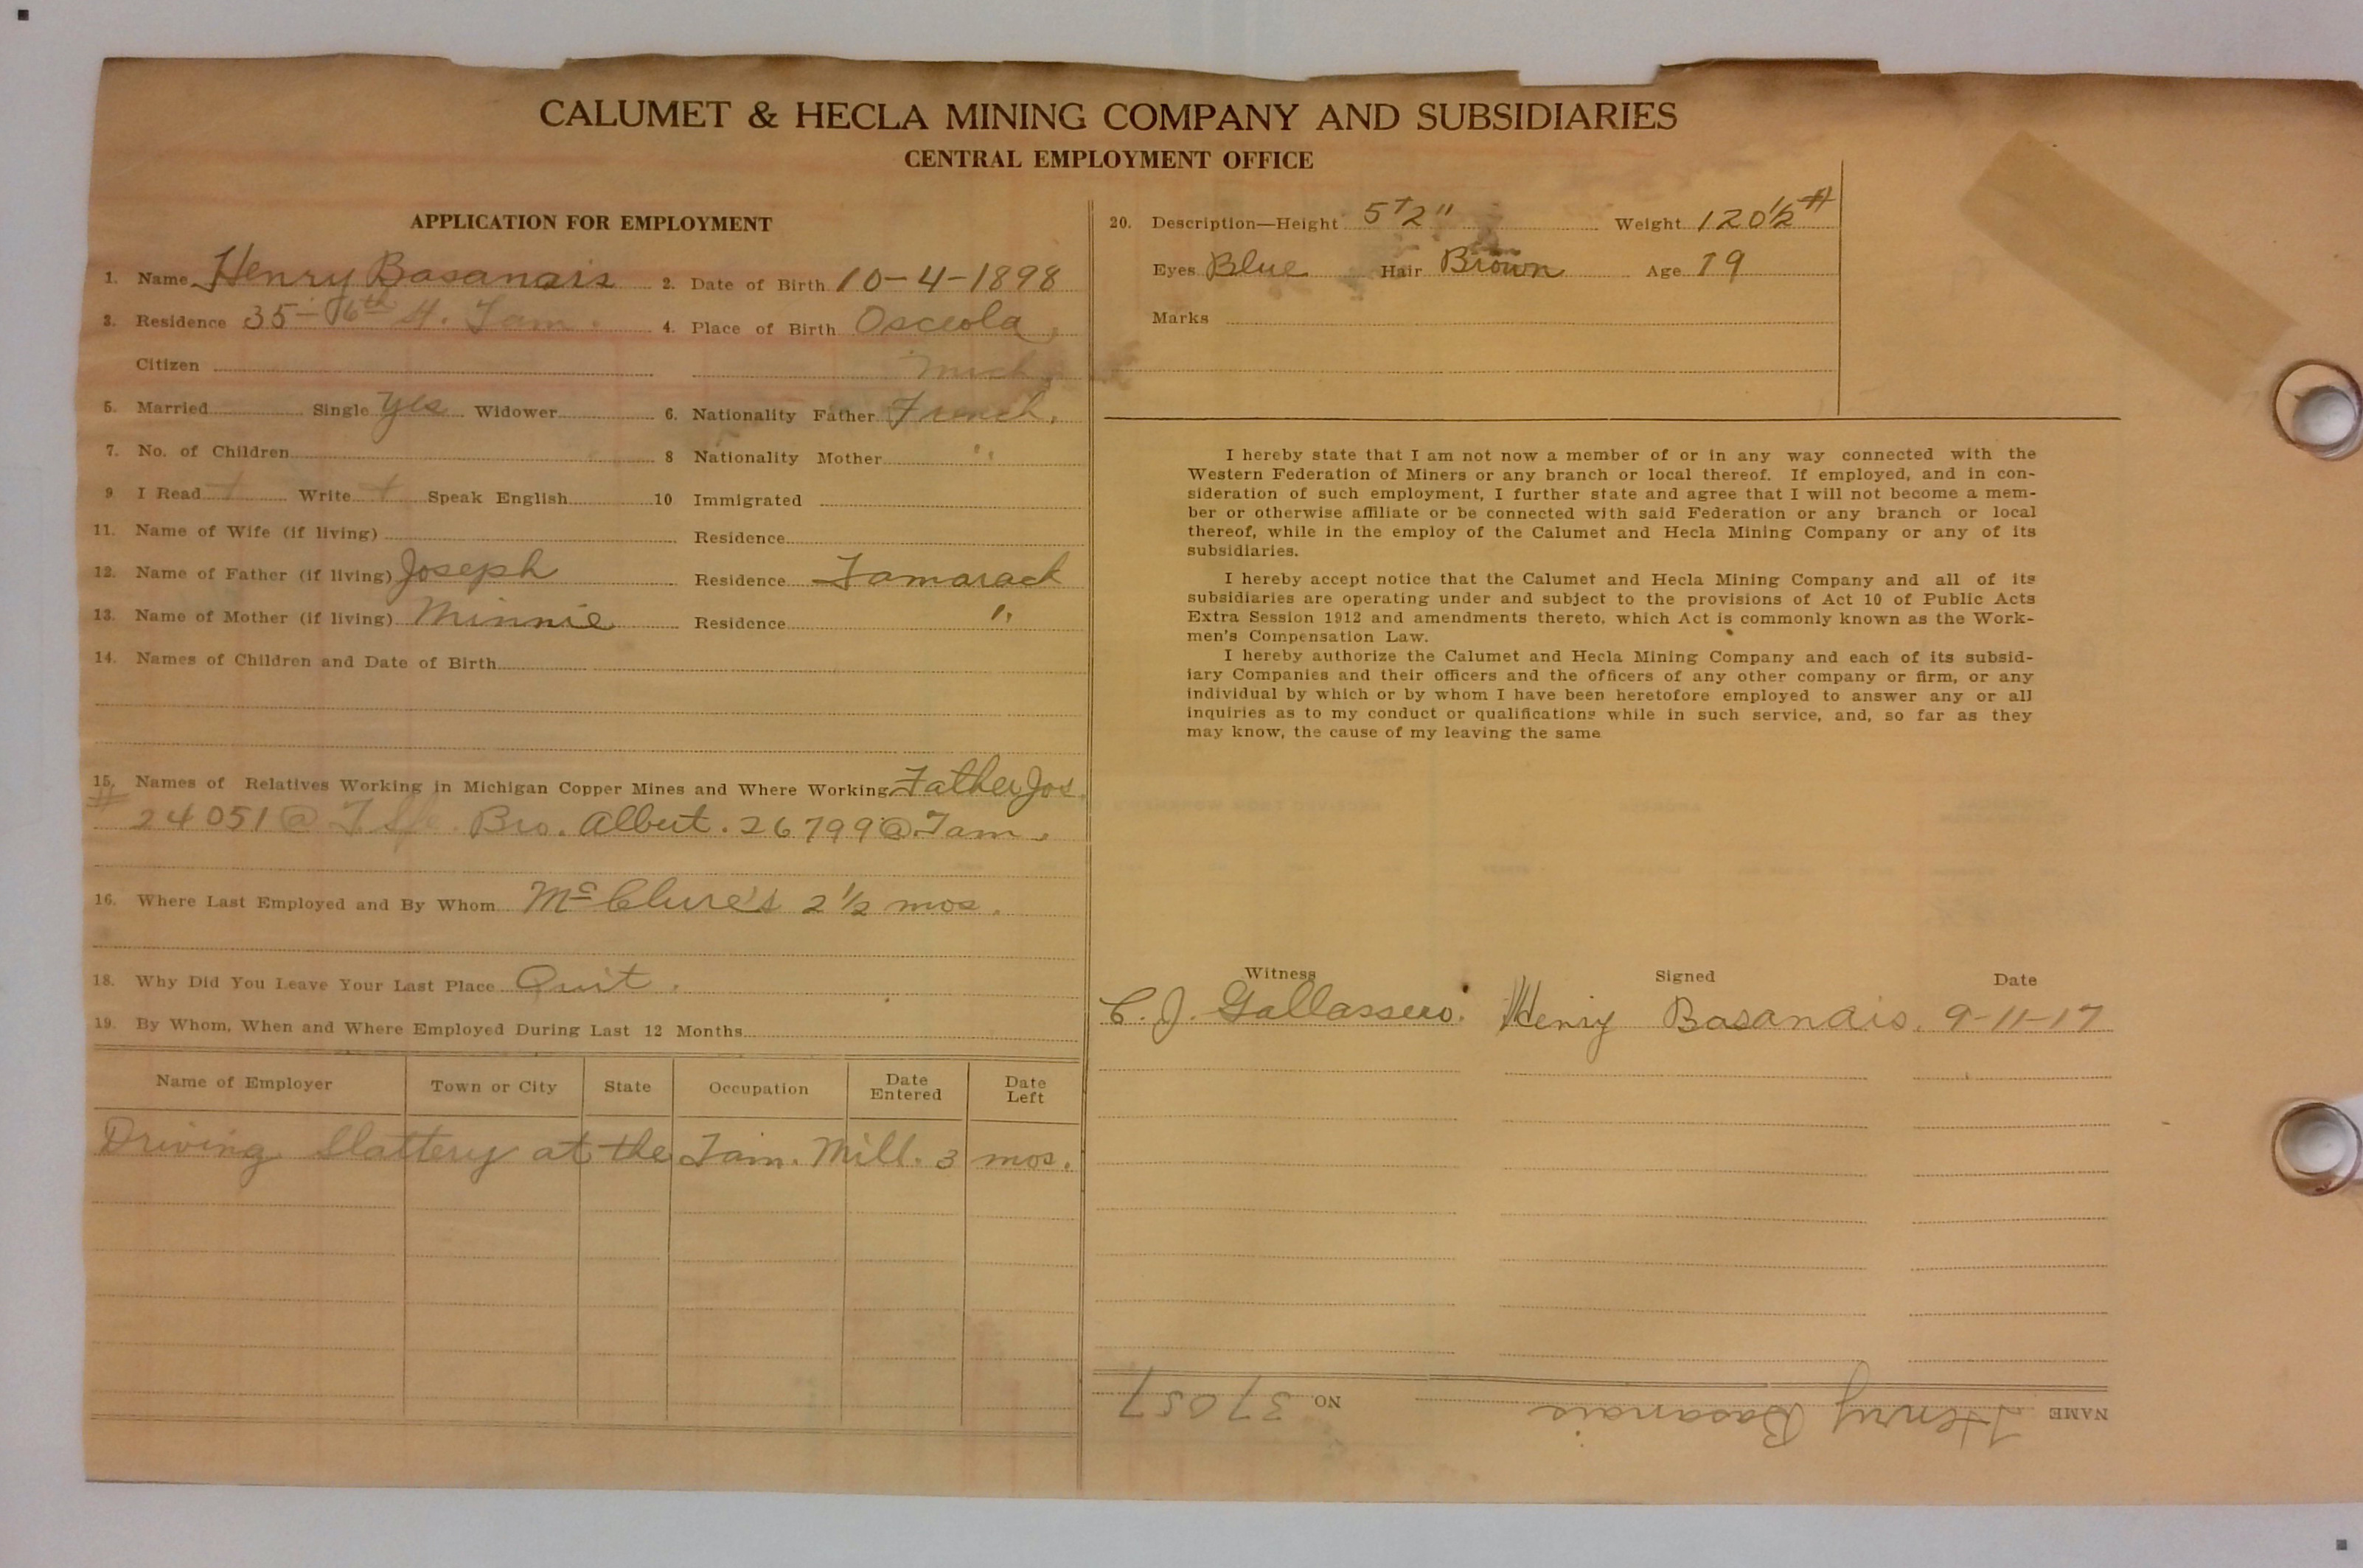 CALUMET & HECLA MINING COMPANY AND SUBSIDIARIES
CENTRAL EMPLOYMENT OFFICE
APPLICATION FOR EMPLOYMENT
1. Name Henry Basanais 2. Date of Birth 10-4-1898
3. Residence 35- 16th St. Tam. 4. Place of Birth Osceola,
Citizen Mich.
5. Married Single Yes Widower 6. Nationality Father French.
7. No. of Children 8 Nationality Mother "
9 I Read + Write + Speak English 10 Immigrated
11. Name of Wife (if living) Residence
12. Name of Father (if living) Joseph Residence Tamarack
13. Name of Mother (if living) Minnie Residence "
14. Names of Children and Date of Birth
15. Names of Relatives Working in Michigan Copper Mines and Where Working Father Jos.
# 24051 @ Bro. Albert. 26799 @ Tam.
16. Where Last Employed and By Whom McClure's 2 1/2 mos.
18. Why Did You Leave Your Last Place Quit.
19. By Whom, When and Where Employed During Last 12 Months
Name of Employer Town or City State Occupation Date Entered Date Left
Driving Slattery at the Tam. Mill. 3 mos.
20. Description—Height 5' 2" Weight 120 1/2 #
Eyes Blue Hair Brown Age 19
Marks
I hereby state that I am not now a member of or in any way connected with the
Western Federation of Miners or any branch or local thereof. If employed, and in con-
sideration of such employment, I further state and agree that I will not become a mem-
ber or otherwise affiliate or be connected with said Federation or any branch or local
thereof, while in the employ of the Calumet and Hecla Mining Company or any of its
subsidiaries.
I hereby accept notice that the Calumet and Hecla Mining Company and all of its
subsidiaries are operating under and subject to the provisions of Act 10 of Public Acts
Extra Session 1912 and amendments thereto, which Act is commonly known as the Work-
men's Compensation Law.
I hereby authorize the Calumet and Hecla Mining Company and each of its subsid-
iary Companies and their officers and the officers of any other company or firm, or any
individual by which or by whom I have been heretofore employed to answer any or all
inquiries as to my conduct or qualifications while in such service, and, so far as they
may know, the cause of my leaving the same
Witness Signed Date
C. J. Gallassero. Henry Basanais. 9-11-17
NAME Henry Basanais NO 37057